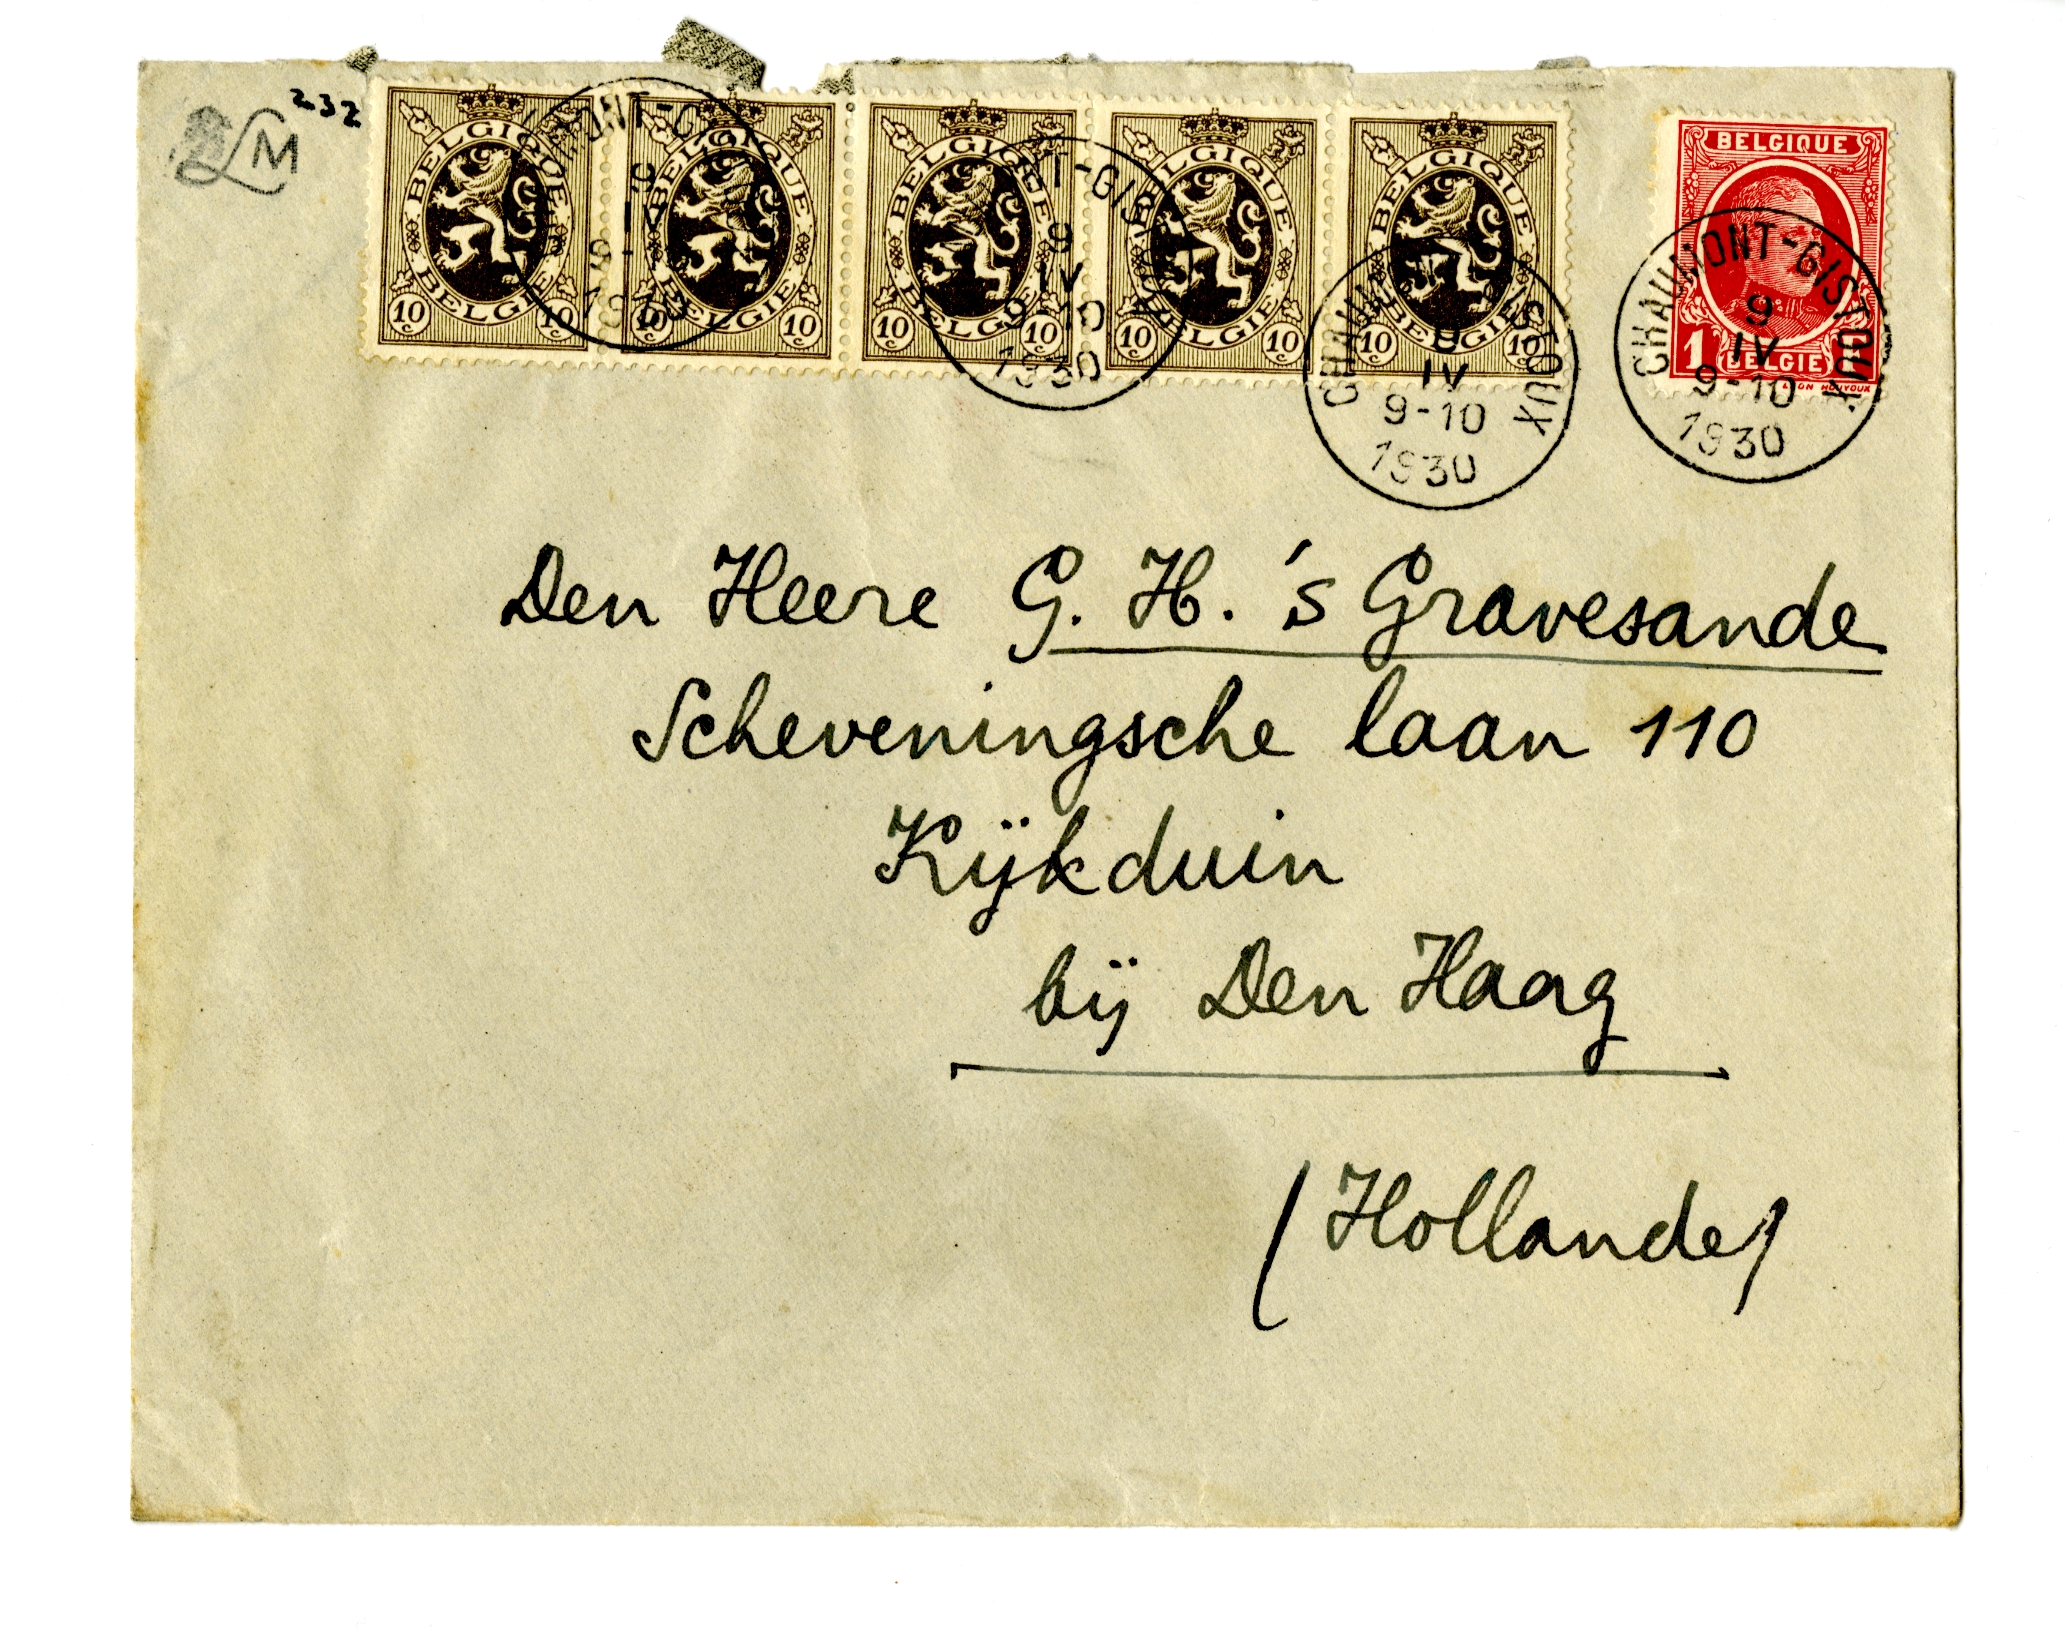 LM
232
BELGIQUE
BELGIE
10c 10c
BELGIQUE
BELGIE
10c 10c
BELGIQUE
BELGIE
10c 10c
BELGIQUE
BELGIE
10c 10c
BELGIQUE
BELGIE
10c 10c
BELGIQUE
1
BELGIE
HOUYOUX
CHAUMONT-GISTOUX
9
IV
9-10
1930
CHAUMONT-GISTOUX
9
IV
9-10
1930
Den Heere G. H. 's Gravesande
Scheveningsche laan 110
Kijkduin
bij Den Haag
(Hollande)